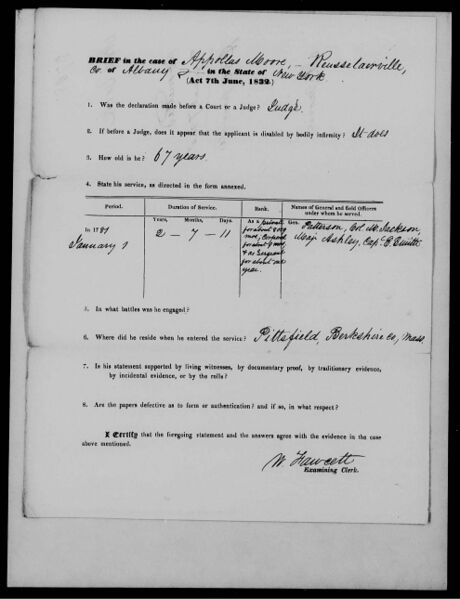 BRIEF in the case of Appollas Moore, – Rensselaerville,
Co. of Albany in the State of New York
(Act 7th June, 1832.)
1. Was the declaration made before a Court or a Judge? Judge.
2. If before a Judge, does it appear that the applicant is disabled by bodily infirmity? It does
3. How old is he? 67 years.
4. State his service, as directed in the form annexed.
Period. Duration of Service. Rank. Names of General and Field Officers under whom he served.
Years, Months, Days.
In 1781
January 1
2 - 7 - 11
As a private
for about 8 or 9
mos, Corporal
for about 9 mos,
& as Sergeant
for about one
year.
Gen. Patterson, Col. M. Jackson,
Maj. Ashley, Cap.
5. In what battles was he engaged?
6. Where did he reside when he entered the service? Pittsfield, Berkshire co, Mass.
7. Is his statement supported by living witnesses, by documentary proof, by traditionary evidence,
by incidental evidence, or by the rolls?
8. Are the papers defective as to form or authentication? and if so, in what respect?
I Certify that the foregoing statement and the answers agree with the evidence in the case
above mentioned.
W. Fawcett
Examining Clerk.